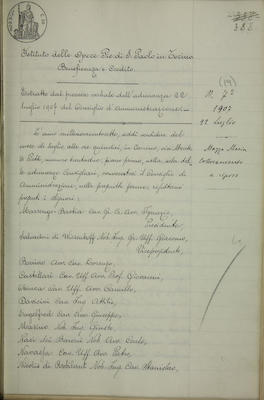 Istituto delle Opere Pie di S. Paolo in Torino
Beneficenza e Credito
Estratto dal processo verbale dell'adunanza 22
luglio 1907 del Consiglio di Amministrazione
(19)
N. 7
1907
22 Luglio
L'anno millenovecentosette, addì ventidue del
mese di luglio, alle ore quindici, in Torino, via Monte
di Pietà, numero trentadue, piano primo, nella sala del
le adunanze Consigliari, convocatosi il Consiglio di
Amministrazione, nelle prescritte forme,
i signori:
Mazza Maria
Collocamento
a riposo
Marsengo Bastia Cav. Ignazio,
Presidente
Ing. Gr. Uff. Giacomo,
Vicepresidente,
Bonino Avv. Cav. Lorenzo,
Castellari Cav. Uff. Avv. Prof. Giovanni,
Cav. Uff. Avv. Camillo,
Cav. Ing. Attilio,
Cav. Avv. Giuseppe,
Nob. Ing. Giusto,
Nasi dei Baroni Nob. Avv. Carlo,
Cav. Uff. Avv. Pietro,
Nicolis di Robilant Nob. Ing. Cav. Stanislao,